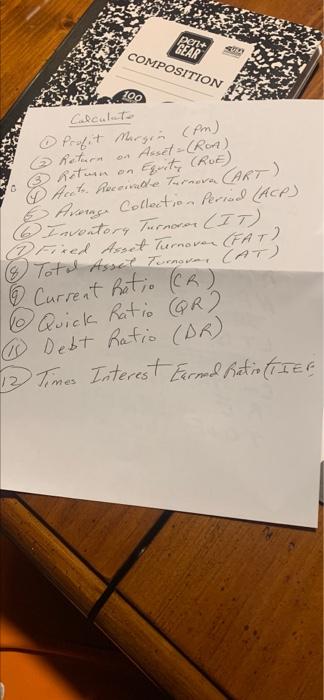 PEN+
GEAR
COMPOSITION
100
Calculate
① Profit Margin (Pm)
② Return on Asset = (ROA)
③ Return on Equity (ROE)
④ Accts. Receivable Turnover (ART)
⑤ Average Collection Period (ACP)
⑥ Inventory Turnover (IT)
⑦ Fixed Asset Turnover (FAT)
⑧ Total Asset Turnover (AT)
⑨ Current Ratio (CR)
⑩ Quick Ratio (QR)
⑪ Debt Ratio (DR)
⑫ Times Interest Earned Ratio (TIER